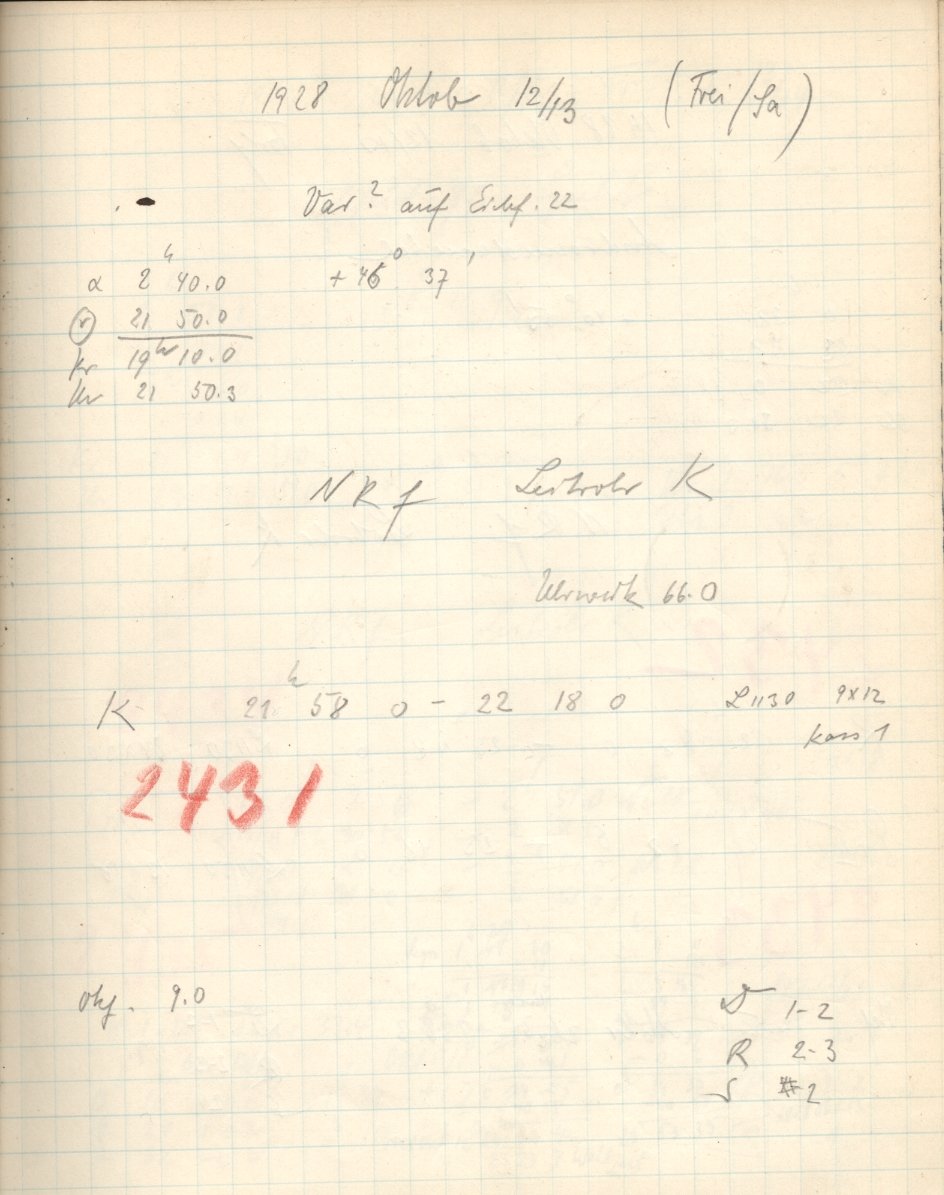 1928 Oktob 12/13 (Frei/Sa)
Var? auf 22
α 2ʰ 40.0 +46° 37'
21 50.0
Kr 19ʰ 10.0
Ur 21 50.3
NRf Leitrohr K
Uhrwerk 66.0
K 21ʰ 58 0 – 22 18 0 L1130 9x12
Kass 1
2431
Obj. 9.0
D 1-2
R 2-3
S 2